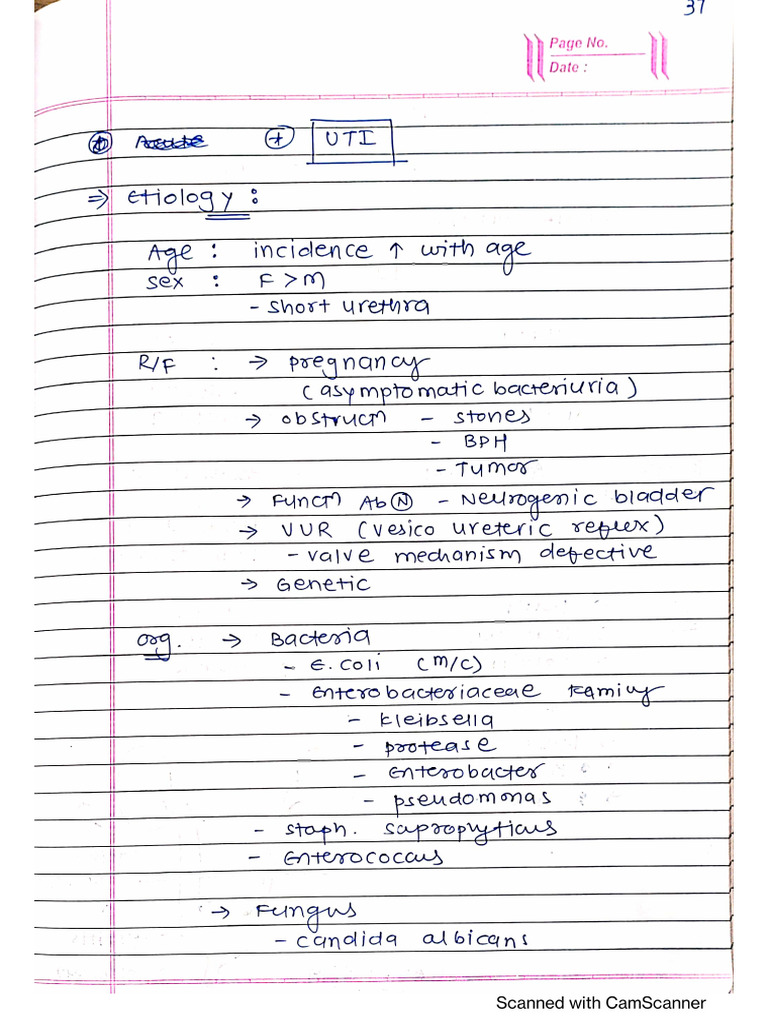 37
Page No.
Date :
Acute + UTI
⇒ Etiology :
Age : incidence ↑ with age
Sex : F > M
- Short urethra
R/F : → pregnancy
(asymptomatic bacteriuria)
→ obstructn - stones
- BPH
- Tumor
→ Functn Ab(N) - Neurogenic bladder
→ VUR (Vesico ureteric reflex)
- valve mechanism defective
→ Genetic
org. → Bacteria
- E. coli (m/c)
- Enterobacteriaceae family
- kleibsella
- protease
- Enterobacter
- pseudomonas
- staph. saprophyticus
- Enterococcus
→ Fungus
- candida albicans
Scanned with CamScanner